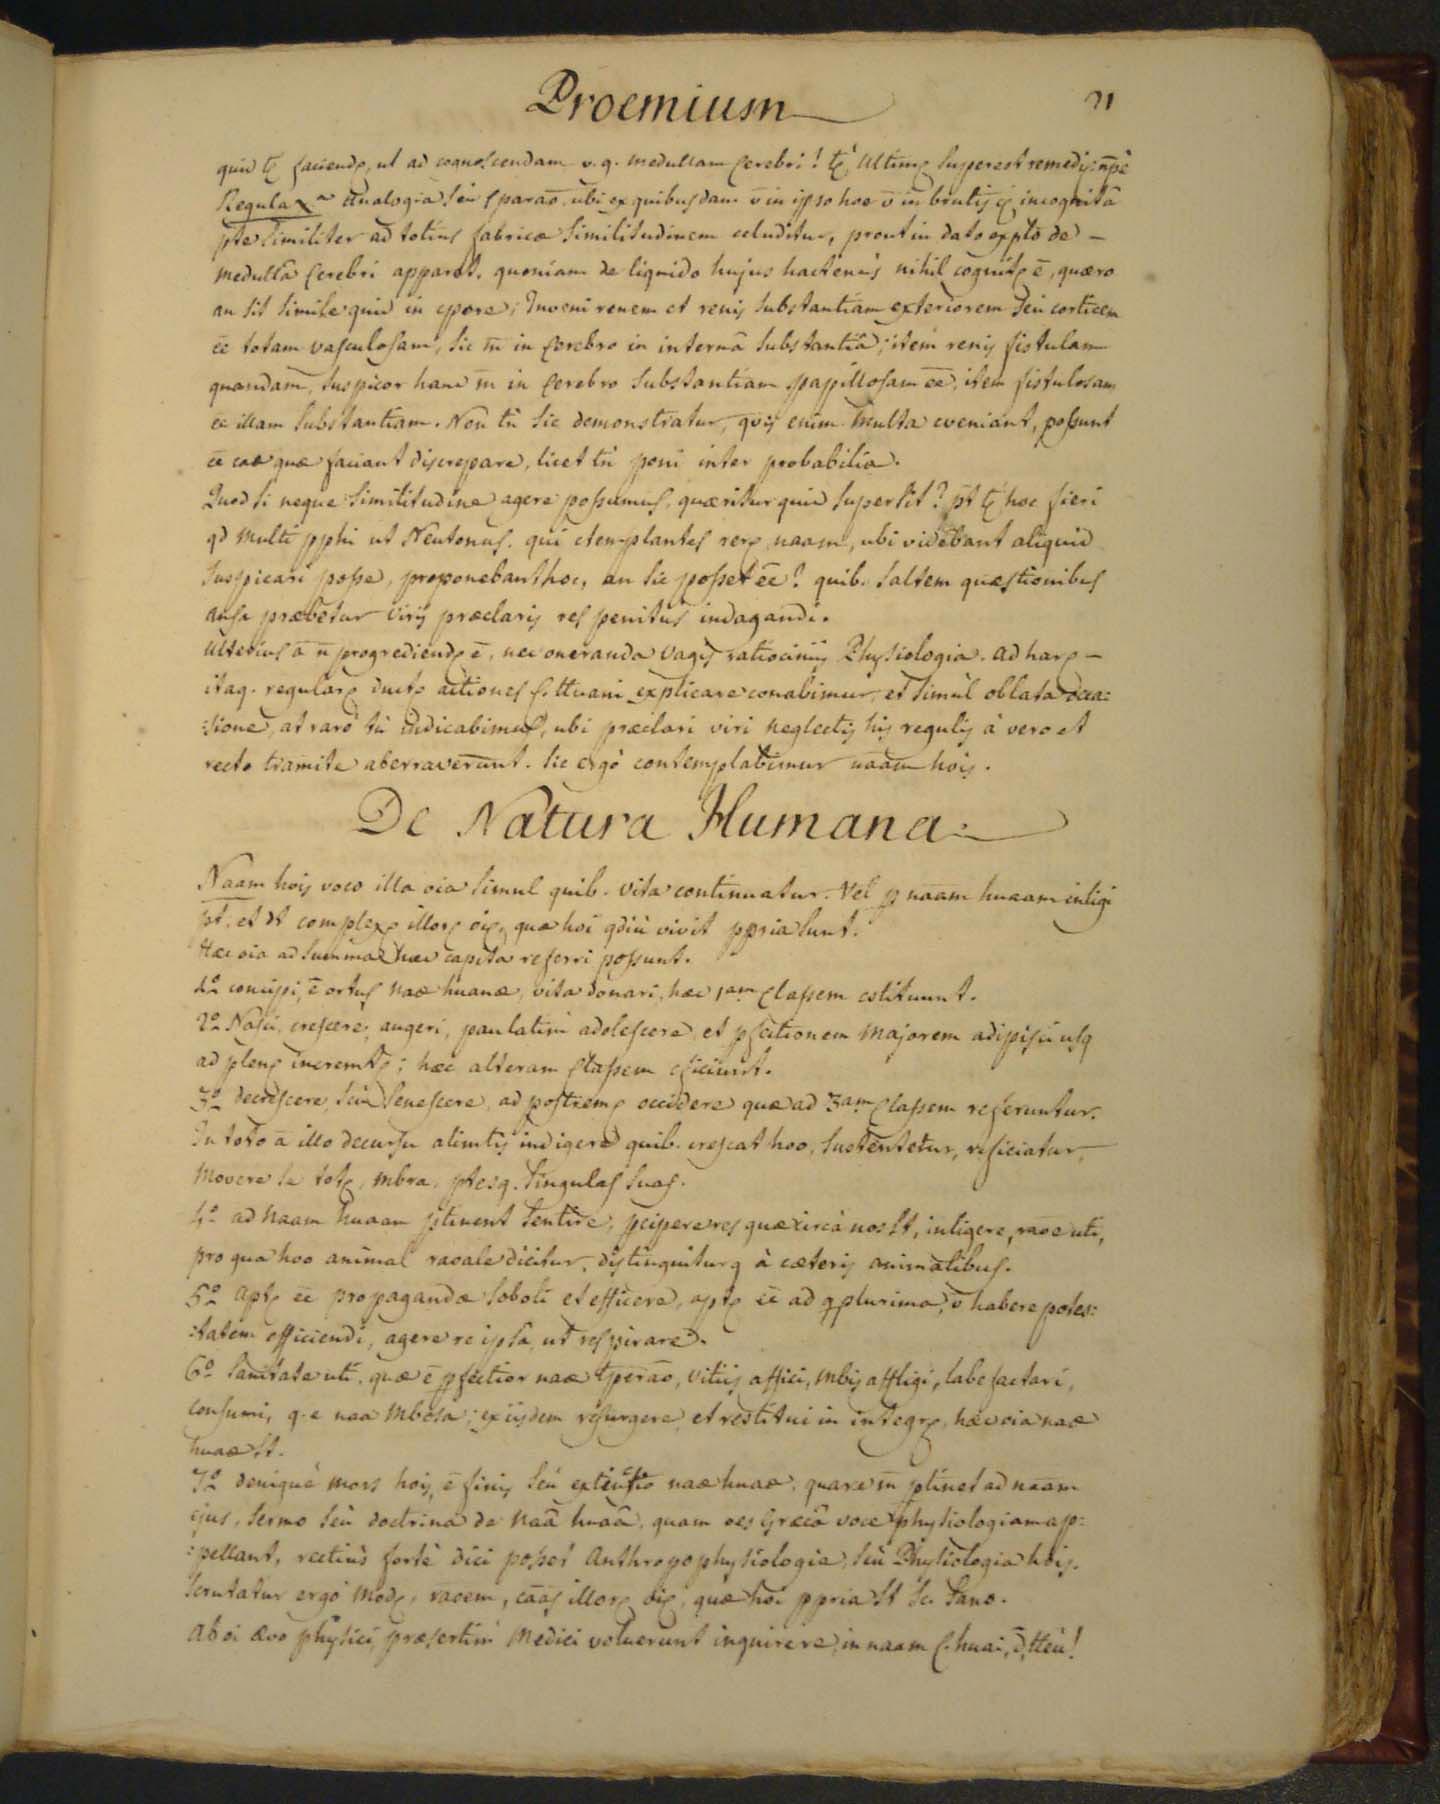 Proemium 21
quid tꝫ faciendꝫ, ut ad cognoscendam v.g. medullam Cerebri! tꝫ Ultimꝫ superest remediꝫ: npè
Regula X. Analogia seu Cparao, ubi ex quibusdam v̄ in ipso hoc v̄ in brutis incognita
pte similiter ad totius fabricæ similitudinem celuditur, prout in dato explo de –
medulla Cerebri apparet. quoniam de liquido hujus hactenus nihil cognitꝫ ē, quæro
an sit simile quid in cpore; Inveni renem et renis substantiam exteriorem seu corticem
ēē totam vasculosam, sic m̄ in Cerebro in interna substantia; item renis fistulam
quandam, suspicor hanc m̄ in Cerebro substantiam papillosam ēē, item fistulosam
ēē illam substantiam. Non tn̄ sic demonstratur, qvis enim multa eveniant, possunt
ēē eaæ quæ faciant discrepare, licet tn̄ poni inter probabilia.
Quod si neque similitudine agere possumus, quæritur quid supersit? pt tꝫ hoc fieri
qd multi pphi ut Neutonus, qui ctemplantes rerꝫ naam, ubi videbant aliquid
suspicari posse, proponebant hoc, an sic posset ēē? quib. saltem quæstionibus
ansa præbetur viris præclaris res penitus indagandi.
Ulterius ā n̄ progrediendꝫ ē, nec oneranda vagis ratiociniis Physiologia. ad harꝫ –
itaq. regularꝫ ductꝫ actiones C. Huani explicare conabimur, et simul oblata occa:
:sione, at raro tn̄ indicabimus, ubi præclari viri neglectis his regulis à vero et
recto tramite aberraverunt. sic ergò contemplabimur naam hois.
De Natura Humana.
Naam hois voco illa oia simul quib. vita continuatur. Vel p naam huaam intligi
pt, et dt complexꝫ illorꝫ oiꝫ quæ hoi qdiù vivit ppria sunt.
Hæc oia ad summa hæc capita referri possunt.
1º concipi, ē ortus naæ huanæ, vita donari, hæc 1am Classem cstituunt.
2º Nasci, crescere, augeri, paulatim adolescere, et pfectionem majorem adipisci usq
ad plenꝫ incremtꝫ; hæc alteram Classem efficiunt.
3º decrescere, seu senescere, ad postremꝫ occidere quæ ad 3am Classem referuntur.
In toto ā illo decursu alimtis indigere quib. crescat hoo, sustentetur, reficiatur,
movere se totꝫ, mbra, ptesq. singulas suas.
4º ad naam huaam ptinent sentire, pcipere res quæ circà nos st, intligere, raoe uti,
pro qua hoo animal raoale dicitur, distinguiturq à cæteris animatibus.
5º aptꝫ ēē propagandæ soboli et efficere, aptꝫ ēē ad qplurima, v̄ habere potes:
:tatem efficiendi, agere re ipsa, ut respirare.
6º sanitate uti, quæ ē pfectior naæ tperao, vitiis affici, mbis affligi, labefactari,
consumi, q. e naa mbosa; ex iisdem resurgere, et restitui in integrꝫ, hæc oia naæ
huaæ st.
7º deniquè mors hois, ē finis seu extinctio naæ huaæ, quare m̄ ptinet ad naam
ejus. sermo seù doctrina de naa huaa, quam oes Græca voce physiologiam ap:
:pellant, rectiùs fortè dici posset Anthropophysiologia, seu Physiologia hois.
scrutatur ergò modꝫ, raoem, caas illorꝫ oiꝫ, quæ hoi ppria st sc. sano.
Ab oi ævo physici, præsertim Medici voluerunt inquirere, in naam C. huai, d, Heu!